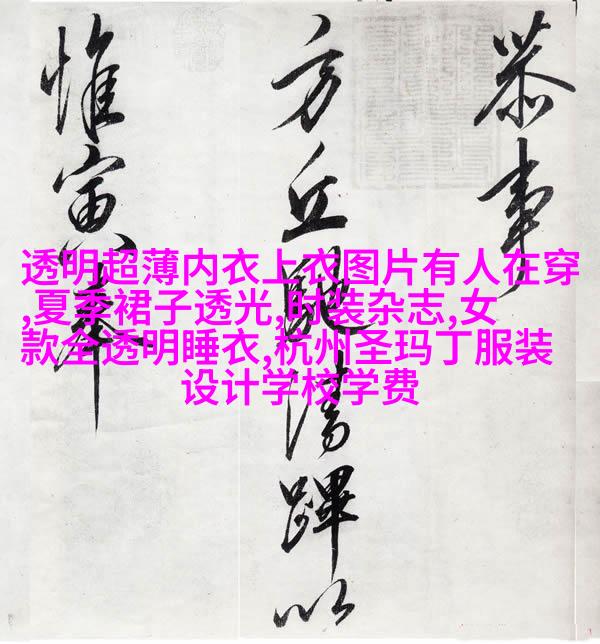 恭事
方丘馳清蹕以
惟寅奉
透明超薄内衣上衣图片有人在穿
,夏季裙子透光,时装杂志,女
款全透明睡衣,杭州圣玛丁服装
设计学校学费